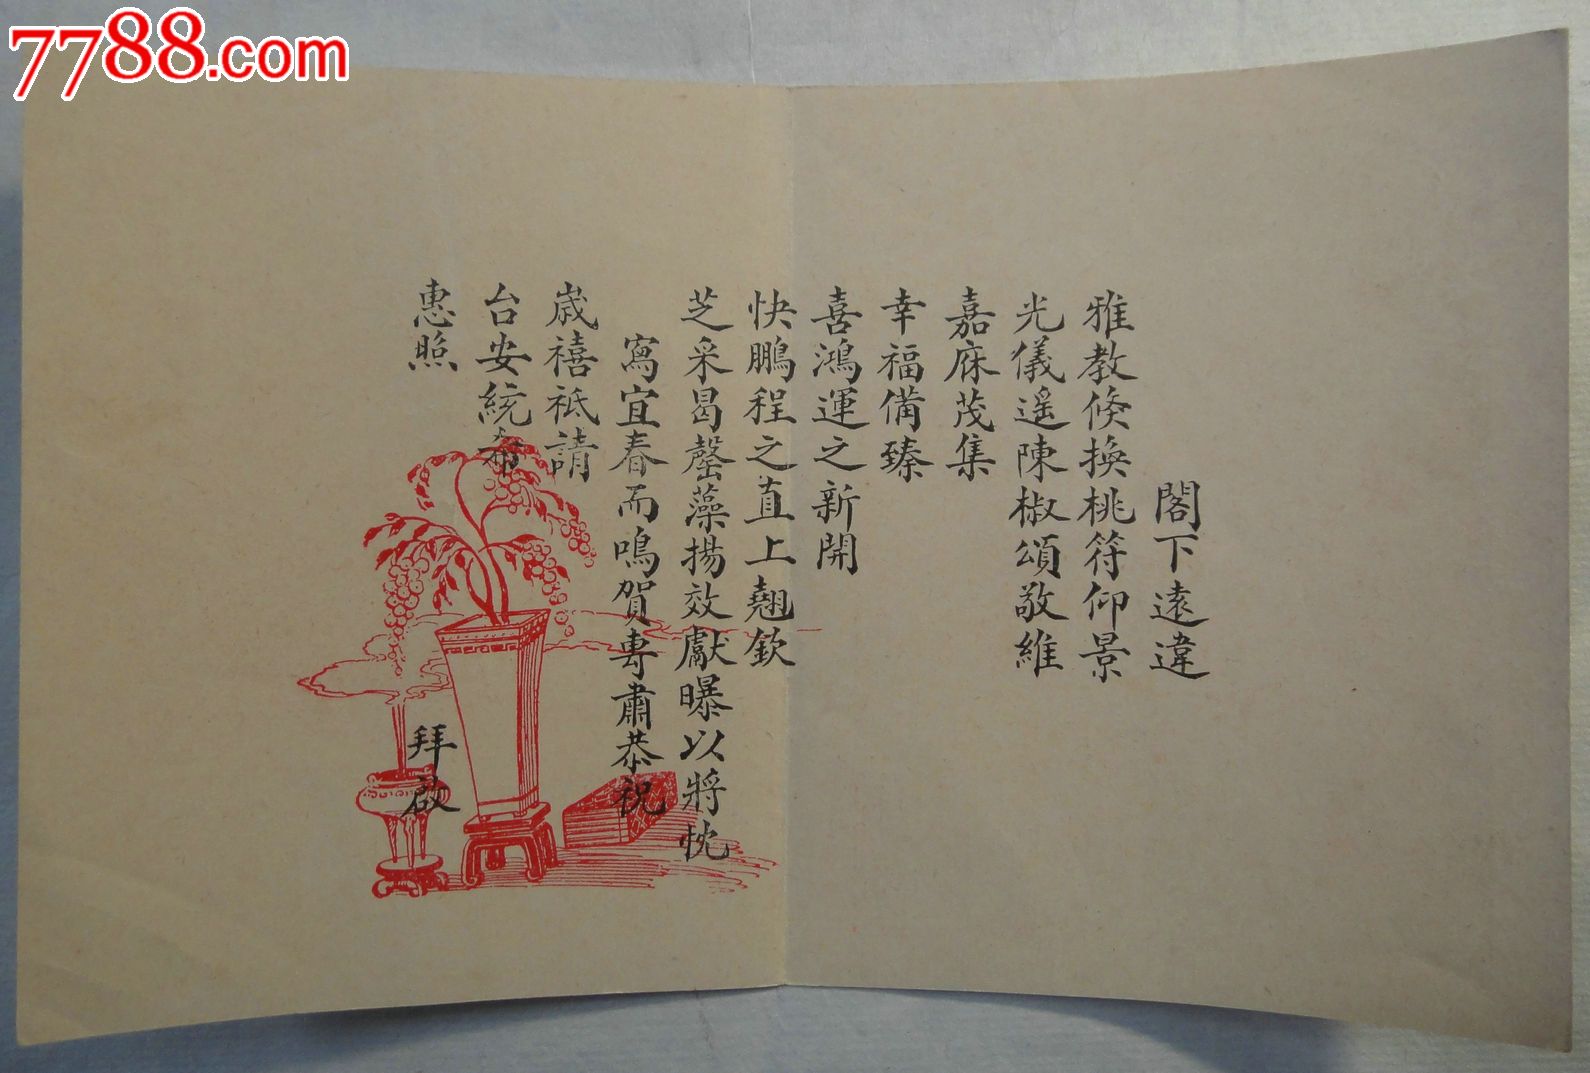 7788.com
閣下遠違
雅教倏換桃符仰景
光儀遥陳椒頌敬維
嘉庥茂集
幸福備臻
喜鴻運之新開
快鵬程之直上翹欽
芝采曷罄藻揚效獻曝以將忱
寫宜春而鳴賀專肅恭祝
歲禧祗請
台安統希
惠照
拜啟